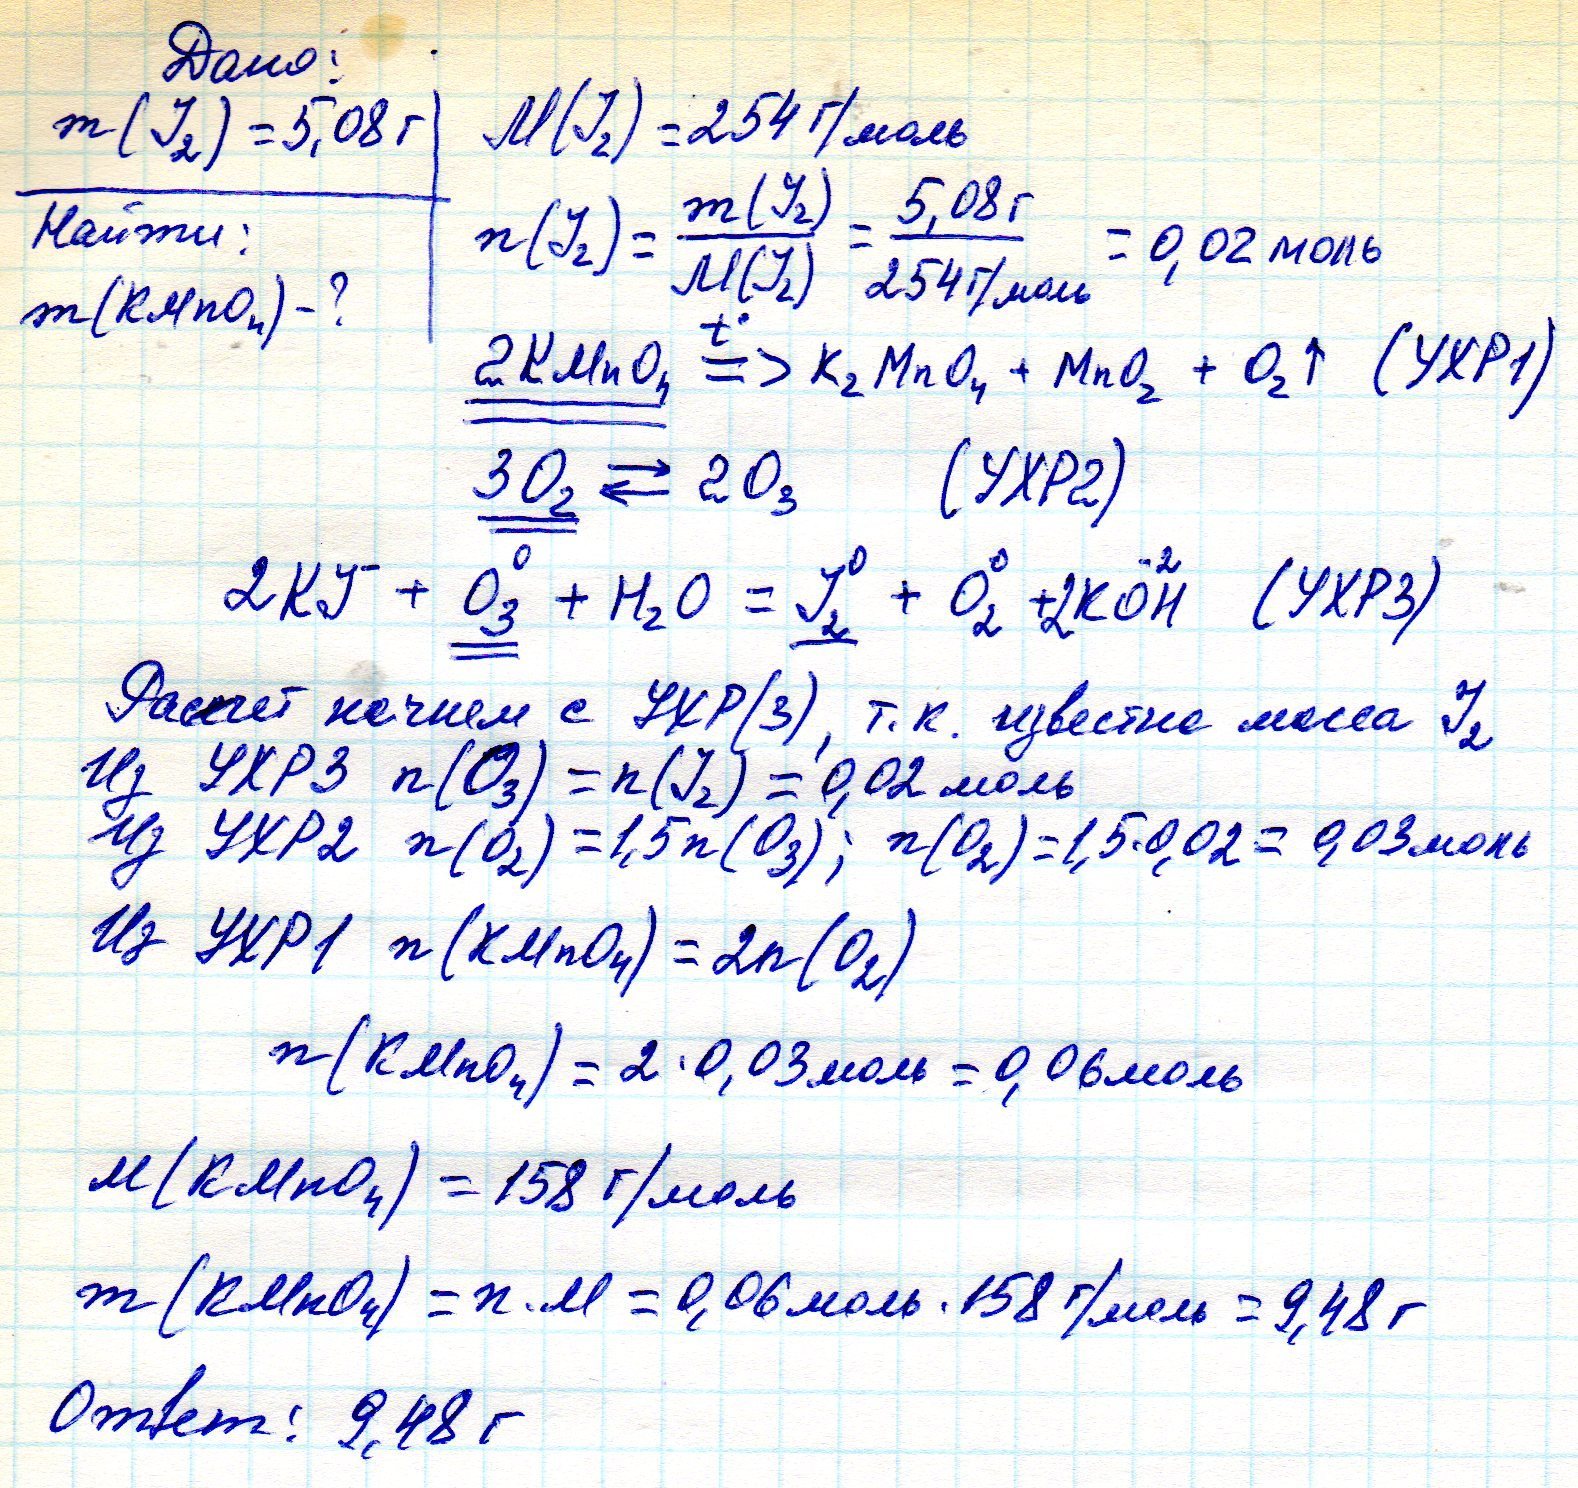 Дано:
m(J₂) = 5,08 г
Найти:
m(KMnO₄) - ?
M(J₂) = 254 г/моль
n(J₂) = m(J₂)/M(J₂) = 5,08 г/254 г/моль = 0,02 моль
2KMnO₄ =t°=> K₂MnO₄ + MnO₂ + O₂↑ (УХР1)
3O₂ ⇄ 2O₃ (УХР2)
2KJ⁻ + O₃⁰ + H₂O = J₂⁰ + O₂⁰ + 2KO⁻²H (УХР3)
Расчет начнем с УХР(3), т.к. известна масса J₂
Из УХР3 n(O₃) = n(J₂) = 0,02 моль
Из УХР2 n(O₂) = 1,5n(O₃); n(O₂) = 1,5·0,02 = 0,03 моль
Из УХР1 n(KMnO₄) = 2n(O₂)
n(KMnO₄) = 2·0,03 моль = 0,06 моль
M(KMnO₄) = 158 г/моль
m(KMnO₄) = n·M = 0,06 моль·158 г/моль = 9,48 г
Ответ: 9,48 г